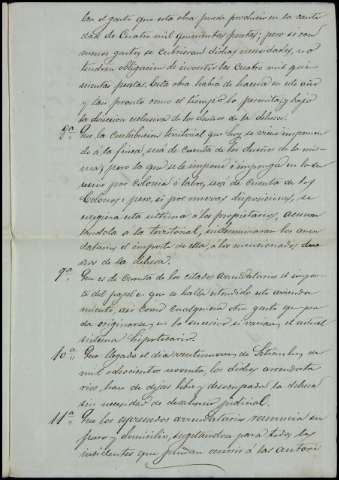 con el gasto que esta obra pueda producir en la canti-
dad de Cuatro mil quinientas pesetas; pero si con
menos gastos se cubrieran dichas necesidades, no
tendrán obligacion de invertir las Cuatro mil quin-
ientas pesetas. Esta obra habrá de hacerse en este año
y tan pronto como el tiempo lo permita y bajo
la direccion esclusiva de los dueños de la dehesa.
8ª Que la contribucion territorial que hoy se viene imponien-
do á la finca, será de cuenta de los dueños de la mis-
ma; pero la que se le impone ó imponga en lo su-
cesivo por colonia ó labor, será de cuenta de los
Colonos: pero, si por nuevas disposiciones, se
exigiera esta última á los propietarios, acumu-
landola á la territorial, indemnizaran los arren-
datarios el importe de ella, á los mencionados due-
ños de la dehesa.
9ª Que es de cuenta de los citados arrendatarios el impor-
te del papel en que se halla estendido este arrenda-
miento, así como cualquier otro gasto que pue-
da originarse, en lo sucesivo si variara, el actual
sistema hipotecario.
10ª Que llegado el dia veintinueve de Setiembre de
mil ochocientos noventa, los dichos arrendata-
rios, han de dejar libre y desocupada la dehesa
sin necesidad de desahucio judicial.
11ª Que los espresados arrendatarios renuncian su
fuero y domicilio, sujetandose para todos los
incidentes que puedan ocurrir á las autori-